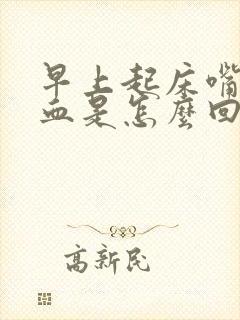 早上起床嘴
血是怎麼回
高新民